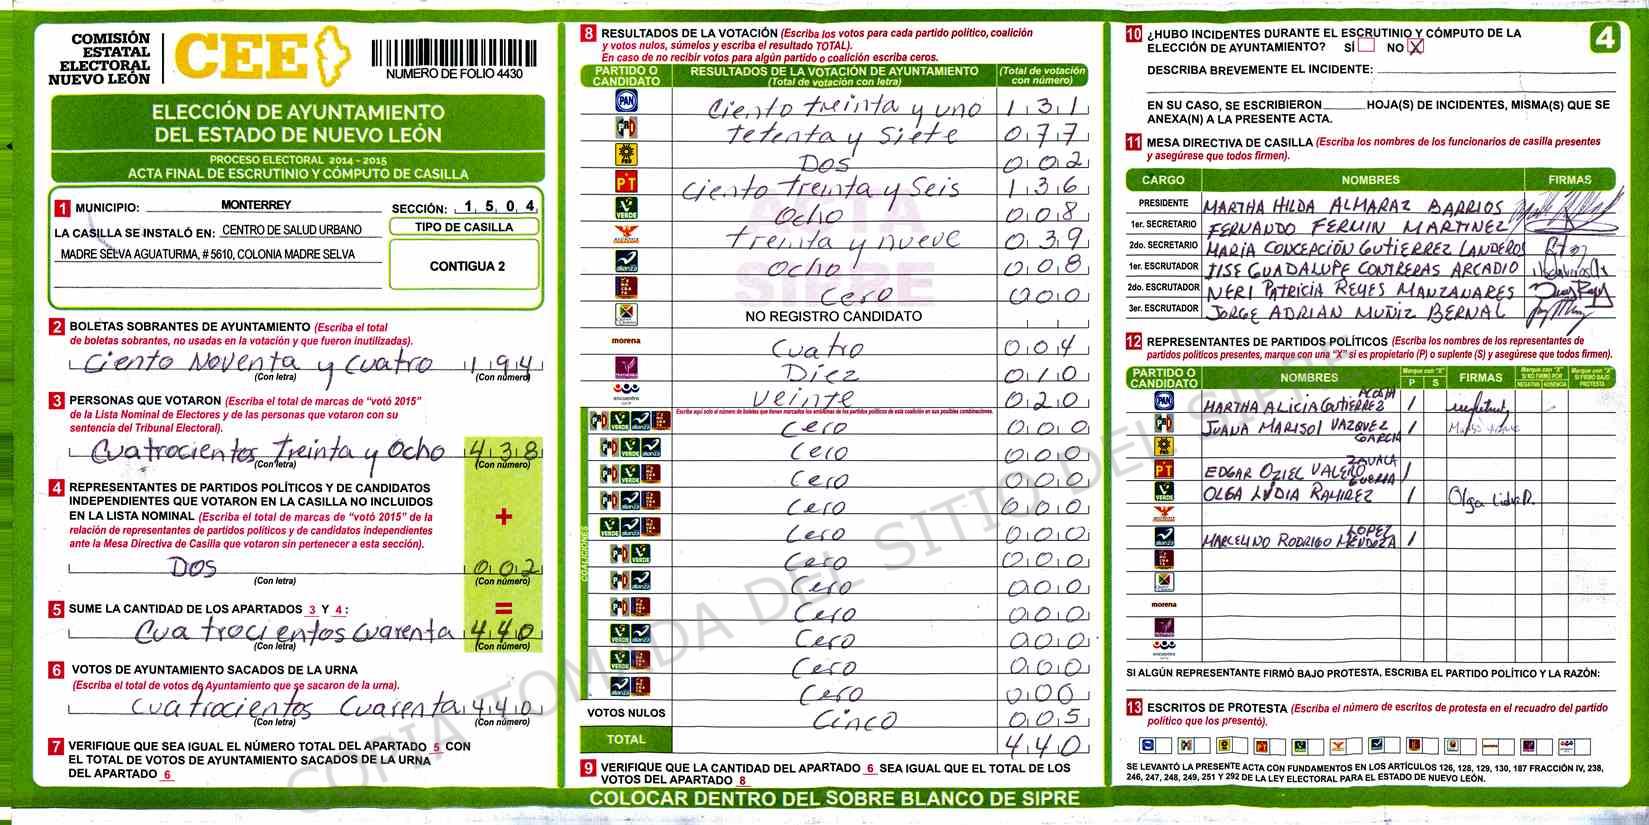 COMISIÓN
ESTATAL
ELECTORAL
NUEVO LEÓN
CEE
NUMERO DE FOLIO 4430
ELECCIÓN DE AYUNTAMIENTO
DEL ESTADO DE NUEVO LEÓN
PROCESO ELECTORAL 2014 - 2015
ACTA FINAL DE ESCRUTINIO Y CÓMPUTO DE CASILLA
1 MUNICIPIO: MONTERREY SECCIÓN: 1 5 0 4
LA CASILLA SE INSTALÓ EN: CENTRO DE SALUD URBANO
MADRE SELVA AGUATURMA, # 5610, COLONIA MADRE SELVA
TIPO DE CASILLA
CONTIGUA 2
2 BOLETAS SOBRANTES DE AYUNTAMIENTO (Escriba el total
de boletas sobrantes, no usadas en la votación y que fueron inutilizadas).
Ciento Noventa y Cuatro 1 9 4
(Con letra) (Con número)
3 PERSONAS QUE VOTARON (Escriba el total de marcas de "votó 2015"
de la Lista Nominal de Electores y de las personas que votaron con su
sentencia del Tribunal Electoral).
Cuatrocientos Treinta y Ocho 4 3 8
(Con letra) (Con número)
4 REPRESENTANTES DE PARTIDOS POLÍTICOS Y DE CANDIDATOS
INDEPENDIENTES QUE VOTARON EN LA CASILLA NO INCLUIDOS
EN LA LISTA NOMINAL (Escriba el total de marcas de "votó 2015" de la
relación de representantes de partidos políticos y de candidatos independientes
ante la Mesa Directiva de Casilla que votaron sin pertenecer a esta sección).
+
DOS 0 0 2
(Con letra) (Con número)
5 SUME LA CANTIDAD DE LOS APARTADOS 3 Y 4 : =
Cuatrocientos Cuarenta 4 4 0
(Con letra) (Con número)
6 VOTOS DE AYUNTAMIENTO SACADOS DE LA URNA
(Escriba el total de votos de Ayuntamiento que se sacaron de la urna).
Cuatrocientos Cuarenta 4 4 0
(Con letra) (Con número)
7 VERIFIQUE QUE SEA IGUAL EL NÚMERO TOTAL DEL APARTADO 5 CON
EL TOTAL DE VOTOS DE AYUNTAMIENTO SACADOS DE LA URNA
DEL APARTADO 6
8 RESULTADOS DE LA VOTACIÓN (Escriba los votos para cada partido político, coalición
y votos nulos, súmelos y escriba el resultado TOTAL).
En caso de no recibir votos para algún partido o coalición escriba ceros.
PARTIDO O CANDIDATO
RESULTADOS DE LA VOTACIÓN DE AYUNTAMIENTO
(Total de votación con letra)
(Total de votación con número)
PAN Ciento treinta y uno 1 3 1
PRI tetenta y Siete 0 7 7
PRD DOS 0 0 2
PT Ciento treinta y Seis 1 3 6
VERDE Ocho 0 0 8
treinta y nueve 0 3 9
alianza Ocho 0 0 8
Cero 0 0 0
NO REGISTRO CANDIDATO
morena Cuatro 0 0 4
Diez 0 1 0
encuentro Veinte 0 2 0
Escriba aquí solo el número de boletas que tienen marcados los emblemas de los partidos políticos de esta coalición en sus posibles combinaciones.
COALICIONES
Cero 0 0 0
Cero 0 0 0
Cero 0 0 0
Cero 0 0 0
Cero 0 0 0
Cero 0 0 0
Cero 0 0 0
Cero 0 0 0
Cero 0 0 0
Cero 0 0 0
Cero 0 0 0
VOTOS NULOS Cinco 0 0 5
TOTAL 4 4 0
9 VERIFIQUE QUE LA CANTIDAD DEL APARTADO 6 SEA IGUAL QUE EL TOTAL DE LOS
VOTOS DEL APARTADO 8
COLOCAR DENTRO DEL SOBRE BLANCO DE SIPRE
ACTA
SIPRE
COPIA TOMADA DEL SITIO DEL SIPRE
4
10 ¿HUBO INCIDENTES DURANTE EL ESCRUTINIO Y CÓMPUTO DE LA
ELECCIÓN DE AYUNTAMIENTO? SÍ NO X
DESCRIBA BREVEMENTE EL INCIDENTE:
EN SU CASO, SE ESCRIBIERON HOJA(S) DE INCIDENTES, MISMA(S) QUE SE
ANEXA(N) A LA PRESENTE ACTA.
11 MESA DIRECTIVA DE CASILLA (Escriba los nombres de los funcionarios de casilla presentes
y asegúrese que todos firmen).
CARGO NOMBRES FIRMAS
PRESIDENTE MARTHA HILDA ALMARAZ BARRIOS
1er. SECRETARIO FERNANDO FERMIN MARTINEZ
2do. SECRETARIO MARIA CONCEPCIÓN GUTIERREZ LANDEROS
1er. ESCRUTADOR ILSE GUADALUPE CONTRERAS ARCADIO
2do. ESCRUTADOR NERI PATRICIA REYES MANZANARES
3er. ESCRUTADOR JORGE ADRIAN MUÑIZ BERNAL
12 REPRESENTANTES DE PARTIDOS POLÍTICOS (Escriba los nombres de los representantes de
partidos políticos presentes, marque con una "X" si es propietario (P) o suplente (S) y asegúrese que todos firmen).
PARTIDO O CANDIDATO NOMBRES Marque con "X" P S FIRMAS Marque con "X" SI NO FIRMÓ POR NEGATIVA AUSENCIA Marque con "X" SI FIRMÓ BAJO PROTESTA
PAN MARTHA ALICIA GUTIERREZ ACOSTA /
PRI JUANA MARISOL VAZQUEZ GARCIA /
PRD
PT EDGAR OZIEL VALERO ZAVALA /
VERDE OLGA LYDIA RAMIREZ GUERRA / Olga Lidia R.
MARCELINO RODRIGO MENDOZA LOPEZ /
morena
encuentro
SI ALGÚN REPRESENTANTE FIRMÓ BAJO PROTESTA, ESCRIBA EL PARTIDO POLÍTICO Y LA RAZÓN:
13 ESCRITOS DE PROTESTA (Escriba el número de escritos de protesta en el recuadro del partido
político que los presentó).
SE LEVANTÓ LA PRESENTE ACTA CON FUNDAMENTOS EN LOS ARTÍCULOS 126, 128, 129, 130, 187 FRACCIÓN IV, 238,
246, 247, 248, 249, 251 Y 292 DE LA LEY ELECTORAL PARA EL ESTADO DE NUEVO LEÓN.